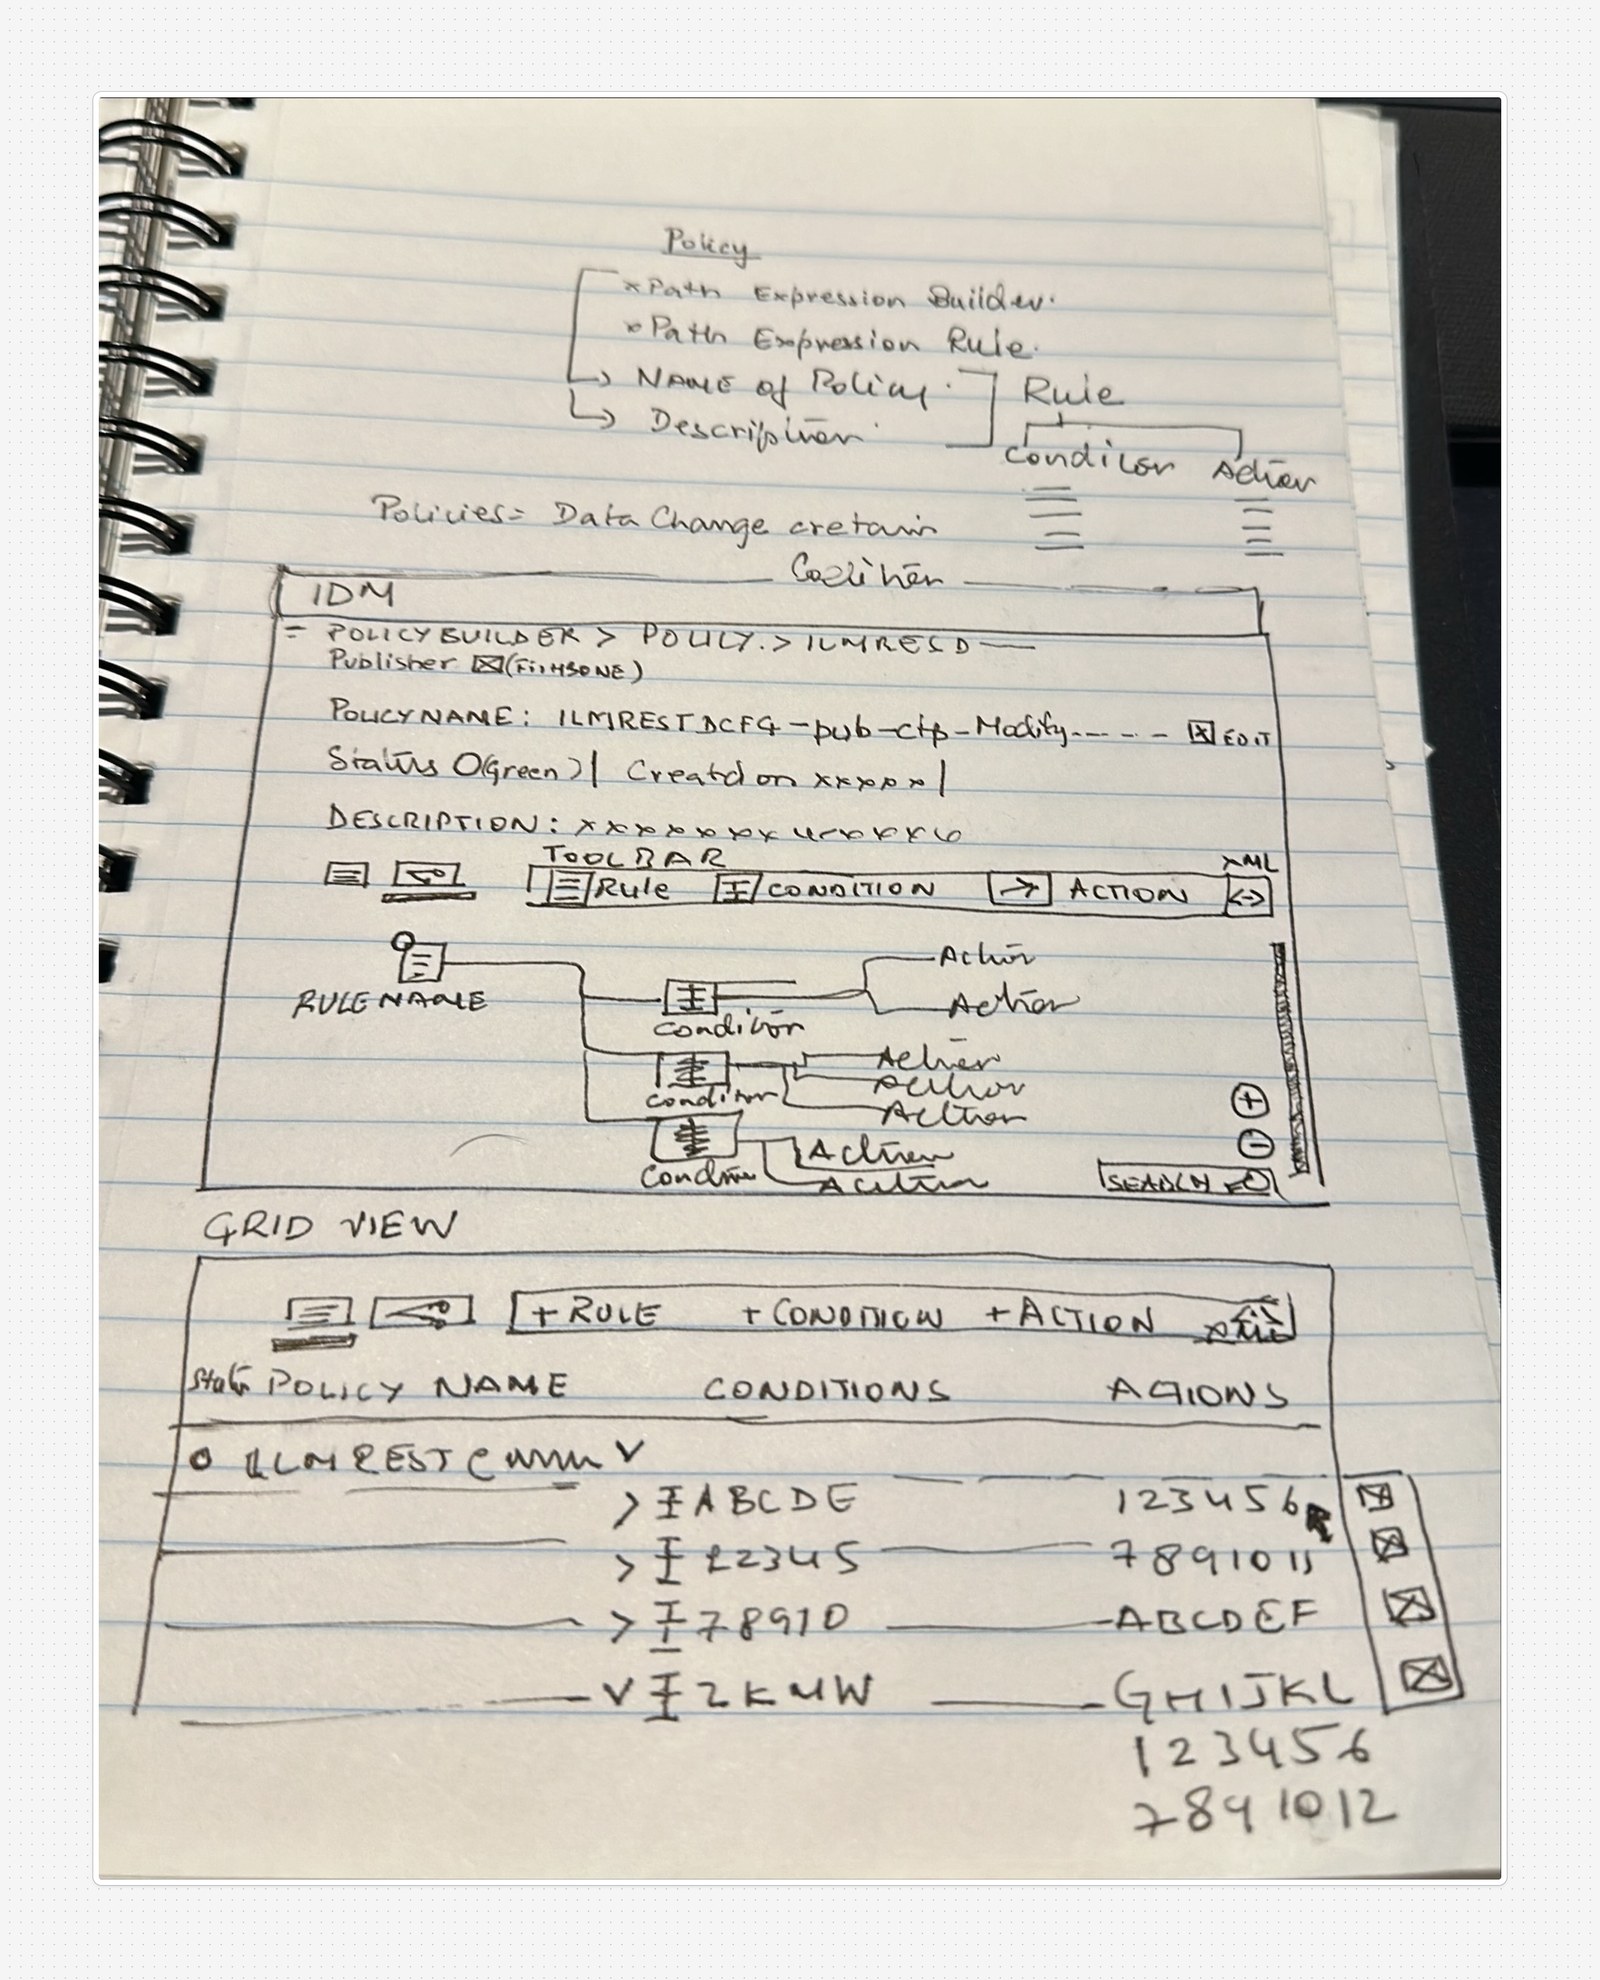 Policy
xPath Expression Builder.
xPath Expression Rule.
NAME of Policy.
Rule
Description
Condition Action
Policies = Data Change cretain
IDM
POLICYBUILDER > POLICY. > ILMRESD
Publisher (FISHBONE)
POLICYNAME: ILMRESTDCFG-pub-ctp-Modify----- EDIT
Status O(Green) | Created on xxxxx |
DESCRIPTION: xxxxxxx
TOOLBAR XML
Rule CONDITION ACTION <->
RULE NAME
Action
Condition Action
Action
Condition Action
Action
Condition Action
Action
+
-
SEARCH
GRID VIEW
+RULE +CONDITION +ACTION
POLICY NAME CONDITIONS ACTIONS
ILMREST
> ABCDE 123456
> 12345 7891011
> 78910 ABCDEF
V ZKMW GHIJKL
123456
7891012